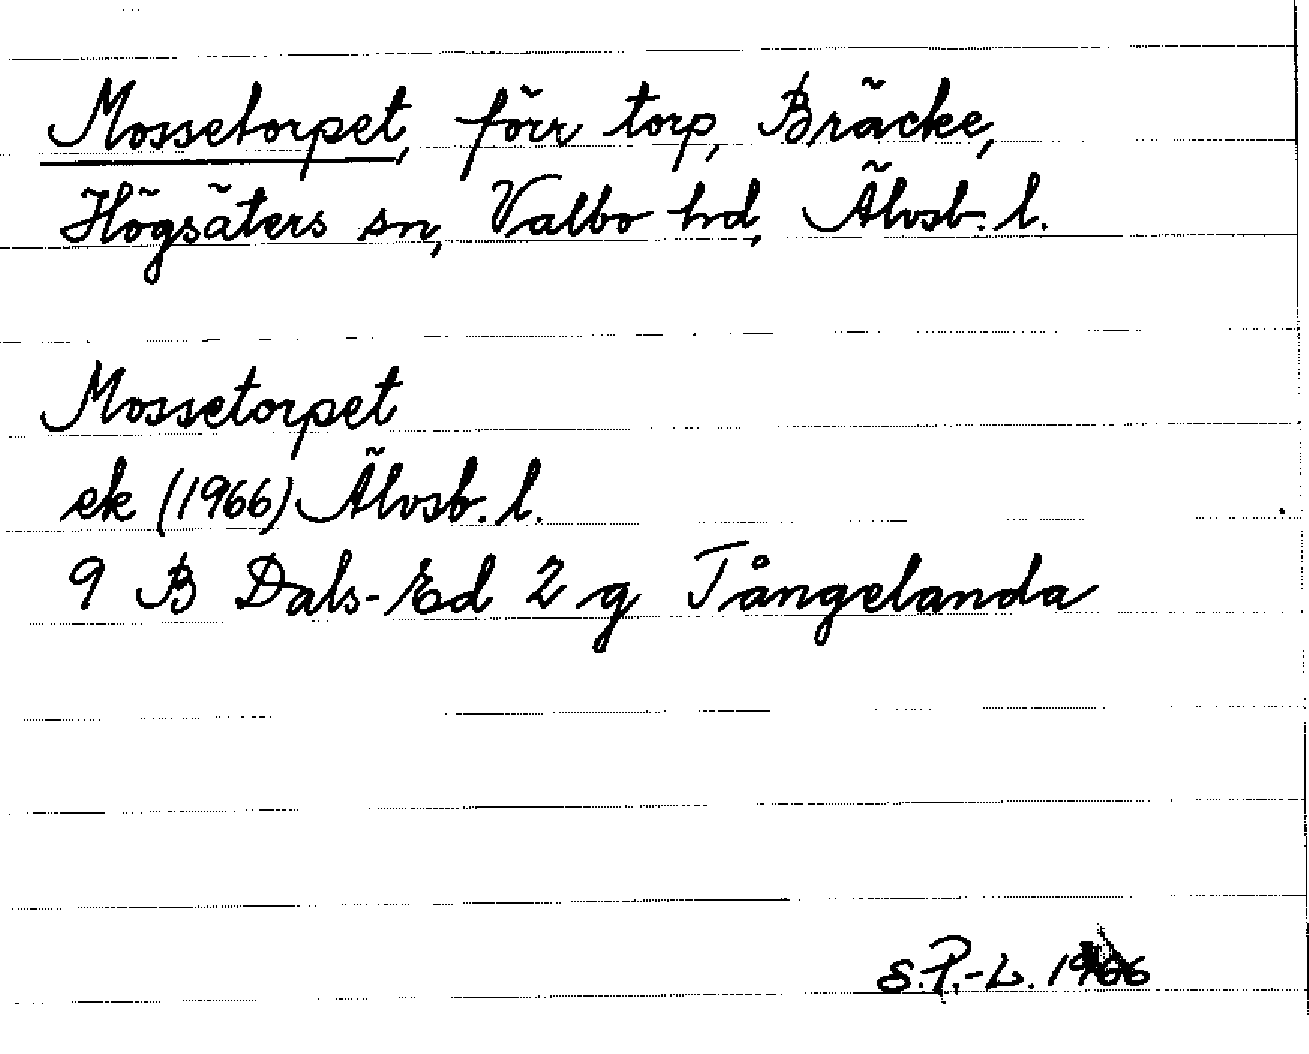 Mossetorpet, förr torp, Bräcke,
Högsäters sn, Valbo hd, Älvsb. l.
Mossetorpet
ek (1966) Älvsb. l.
9 B Dals-Ed 2 g Tångelanda
S.P.-L. 1966